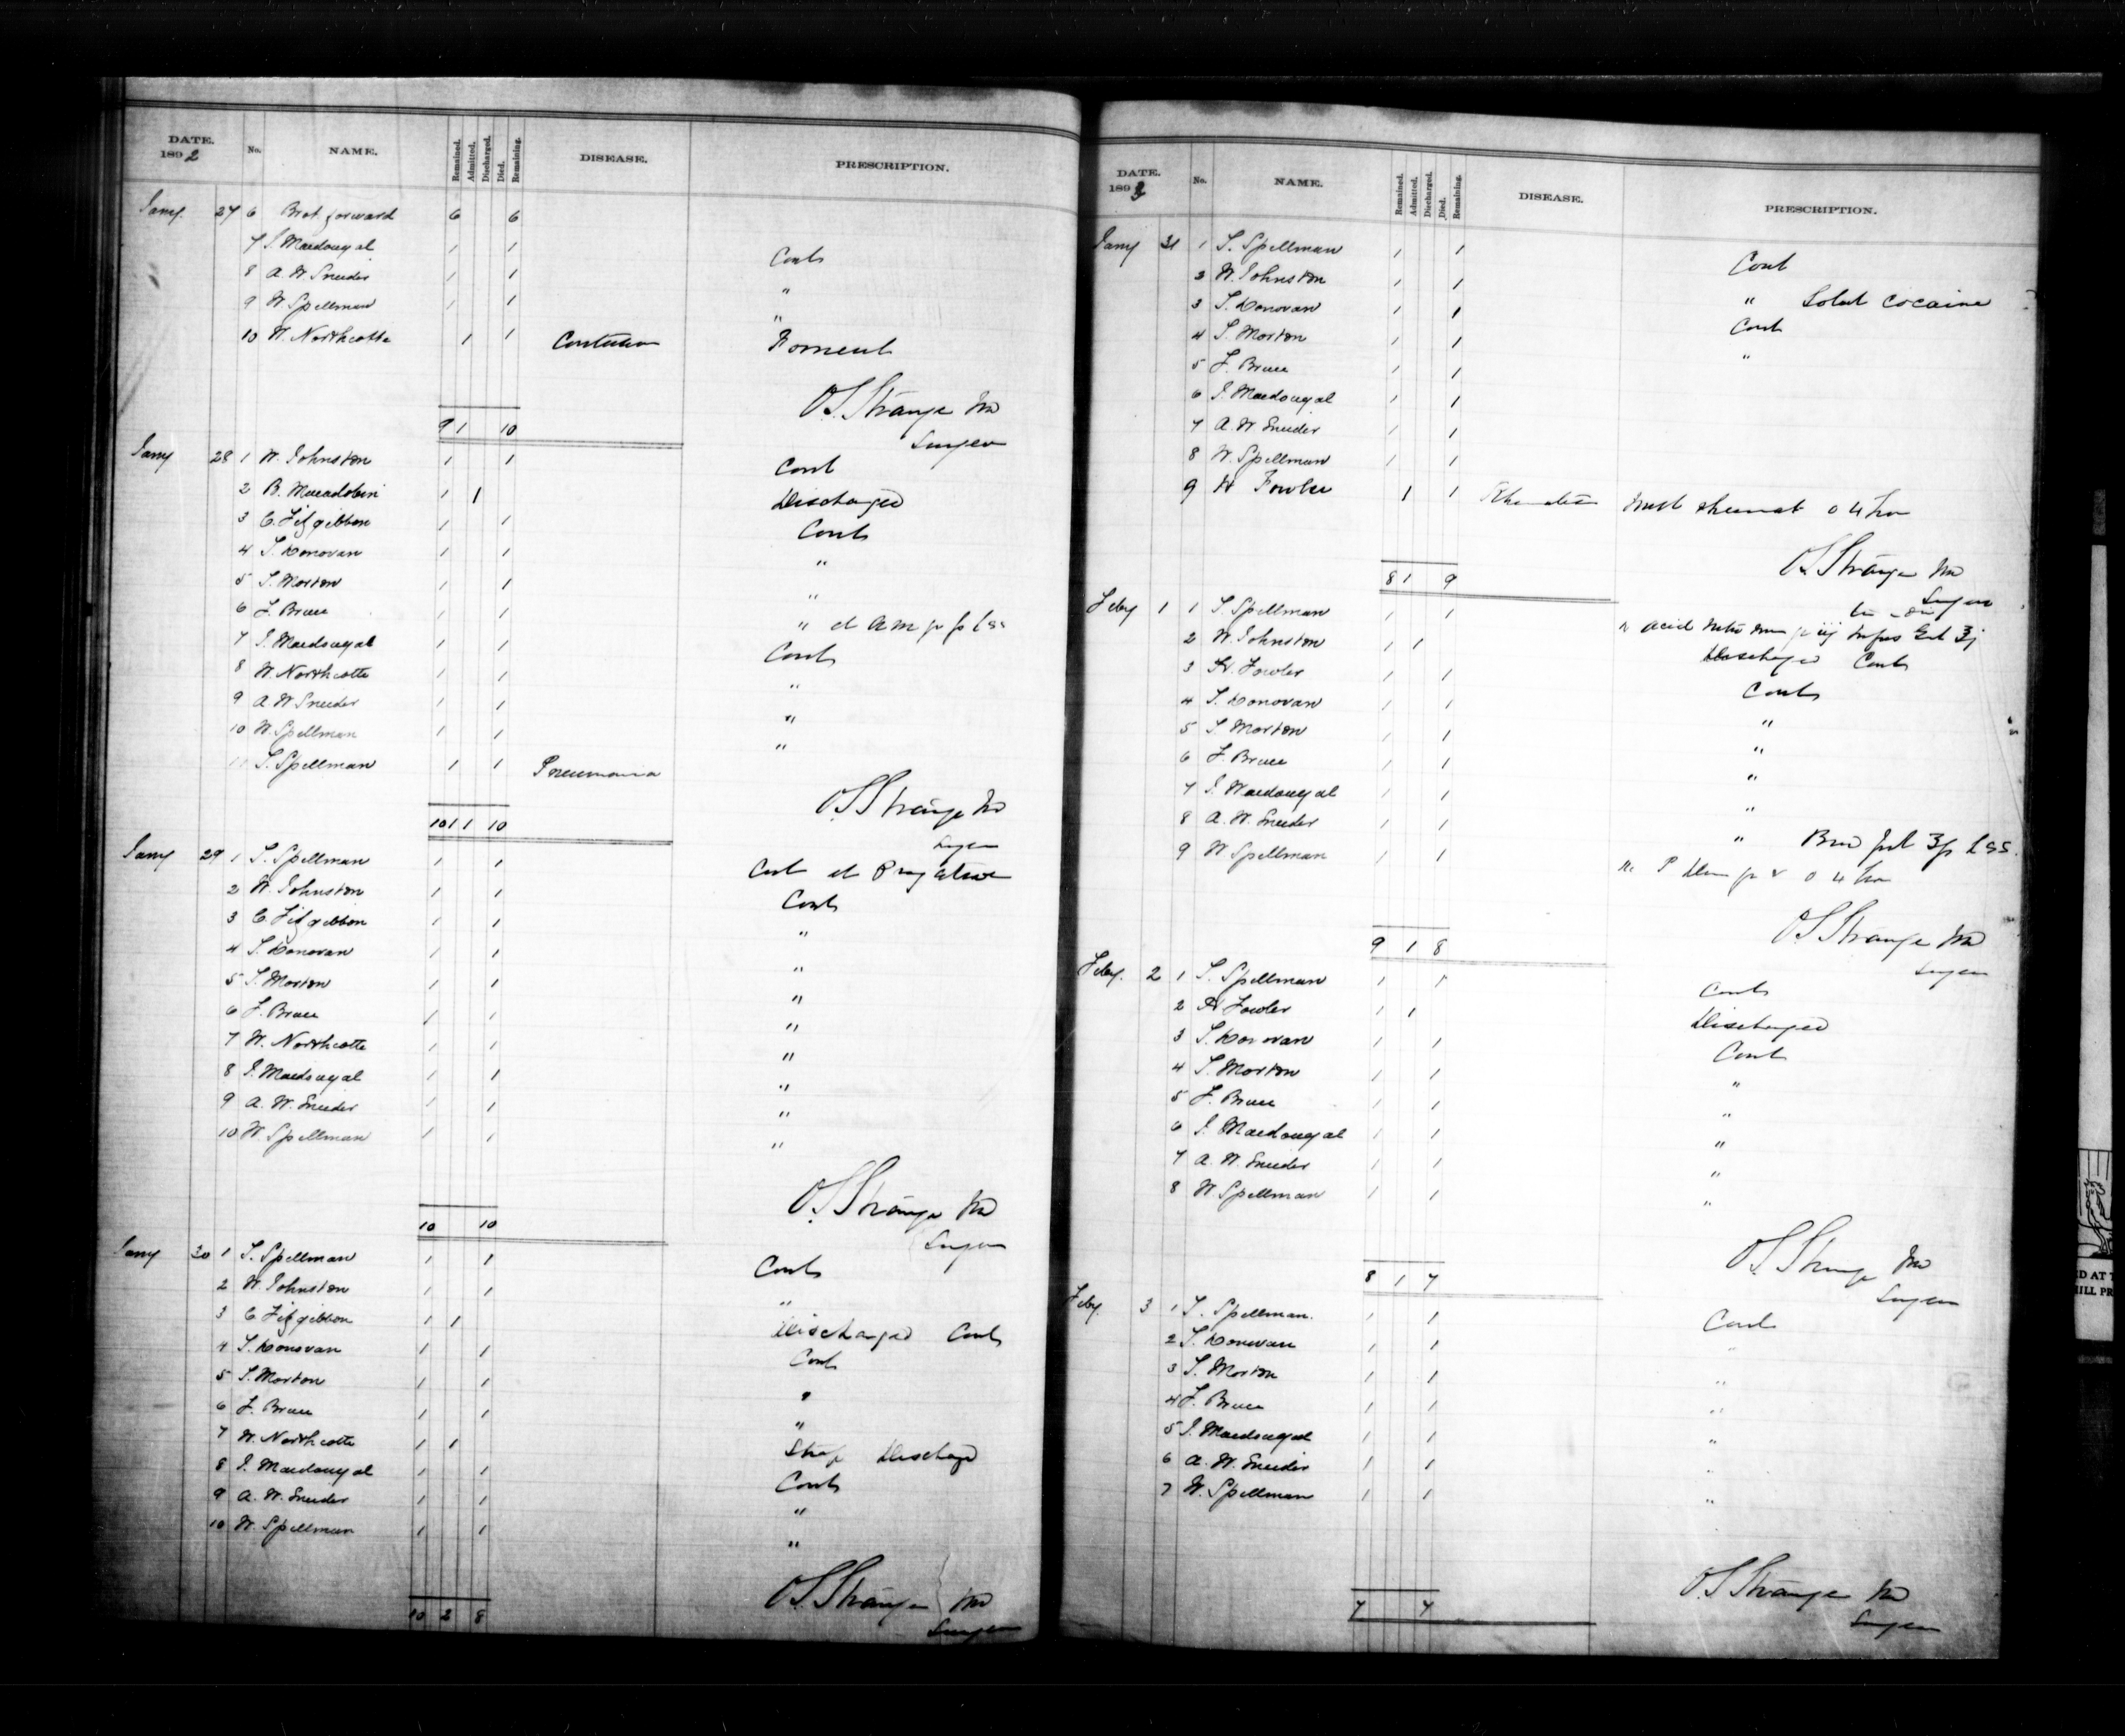 DATE. 1892 No. NAME. Remained. Admitted. Discharged. Died. Remaining. DISEASE. PRESCRIPTION.
Jany 27 6 Brot forward 6 6
7 J. Macdougal 1 1 Cont
8 A. W Sneider 1 1 "
9 W Spellman 1 1 "
10 W. Northcotte 1 1 Contusion Foment
O. S. Strange MD
9 1 10 Surgeon
Jany 28 1 W. Johnston 1 1 Cont
2 B. 1 1 Discharged
3 C. Fitzgibbon 1 1 Cont
4 T. Donovan 1 1 "
5 T. Morton 1 1 "
6 F. Bruce 1 1 "
7 J. Macdougal 1 1 Cont
8 W. Northcotte 1 1 "
9 A W Sneider 1 1 "
10 W. Spellman 1 1 "
11 T. Spellman 1 1 Pneumonia
O. S. Strange MD
10 1 1 10 Surgeon
Jany 29 1 T. Spellman 1 1 Cont et Purgative
2 W. Johnston 1 1 Cont
3 C. Fitzgibbon 1 1 "
4 T. Donovan 1 1 "
5 T. Morton 1 1 "
6 F. Bruce 1 1 "
7 W. Northcotte 1 1 "
8 J. Macdougal 1 1 "
9 A. W. Sneider 1 1 "
10 W Spellman 1 1 "
O. S. Strange MD
10 10 Surgeon
Jany 30 1 T. Spellman 1 1 Cont
2 W. Johnston 1 1 "
3 C Fitzgibbon 1 1 Discharged Cont
4 T. Donovan 1 1 Cont
5 T. Morton 1 1 "
6 F. Bruce 1 1 "
7 W. Northcotte 1 1 Stop Discharged
8 J. Macdougal 1 1 Cont
9 A. W. Sneider 1 1 "
10 W. Spellman 1 1 "
O. S. Strange MD
10 2 8 Surgeon
DATE. 1892 No. NAME. Remained. Admitted. Discharged. Died. Remaining. DISEASE. PRESCRIPTION.
Jany 31 1 T. Spellman 1 1 Cont
2 W. Johnston 1 1 " Solut Cocaine
3 T. Donovan 1 1 Cont
4 T. Morton 1 1 "
5 F. Bruce 1 1
6 J. Macdougal 1 1
7 A. W Sneider 1 1
8 W. Spellman 1 1
9 H Fowler 1 1 Rheumatism Mist rheumat 4
O. S. Strange MD
8 1 9 Surgeon
Feby 1 1 T. Spellman 1 1 acid nitro mur Infus Gent
2 W. Johnston 1 1 Discharged Cont
3 H. Fowler 1 1 Cont
4 T. Donovan 1 1 "
5 T. Morton 1 1 "
6 F. Bruce 1 1 "
7 J. Macdougal 1 1 "
8 A. W. Sneider 1 1 "
9 W Spellman 1 1
O. S. Strange MD
9 1 8 Surgeon
Feby. 2 1 T. Spellman 1 1 Cont
2 H Fowler 1 1 Discharged
3 T. Donovan 1 1 Cont
4 T. Morton 1 1 "
5 F. Bruce 1 1 "
6 J. Macdougal 1 1 "
7 A. W. Sneider 1 1 "
8 W Spellman 1 1 "
O. S. Strange MD
8 1 7 Surgeon
Feby. 3 1 T. Spellman. 1 1 Cont
2 T. Donovan 1 1 "
3 T. Morton 1 1 "
4 F. Bruce 1 1 "
5 J. Macdougal 1 1 "
6 A. W. Sneider 1 1 "
7 W. Spellman 1 1 "
O. S. Strange MD
7 7 Surgeon